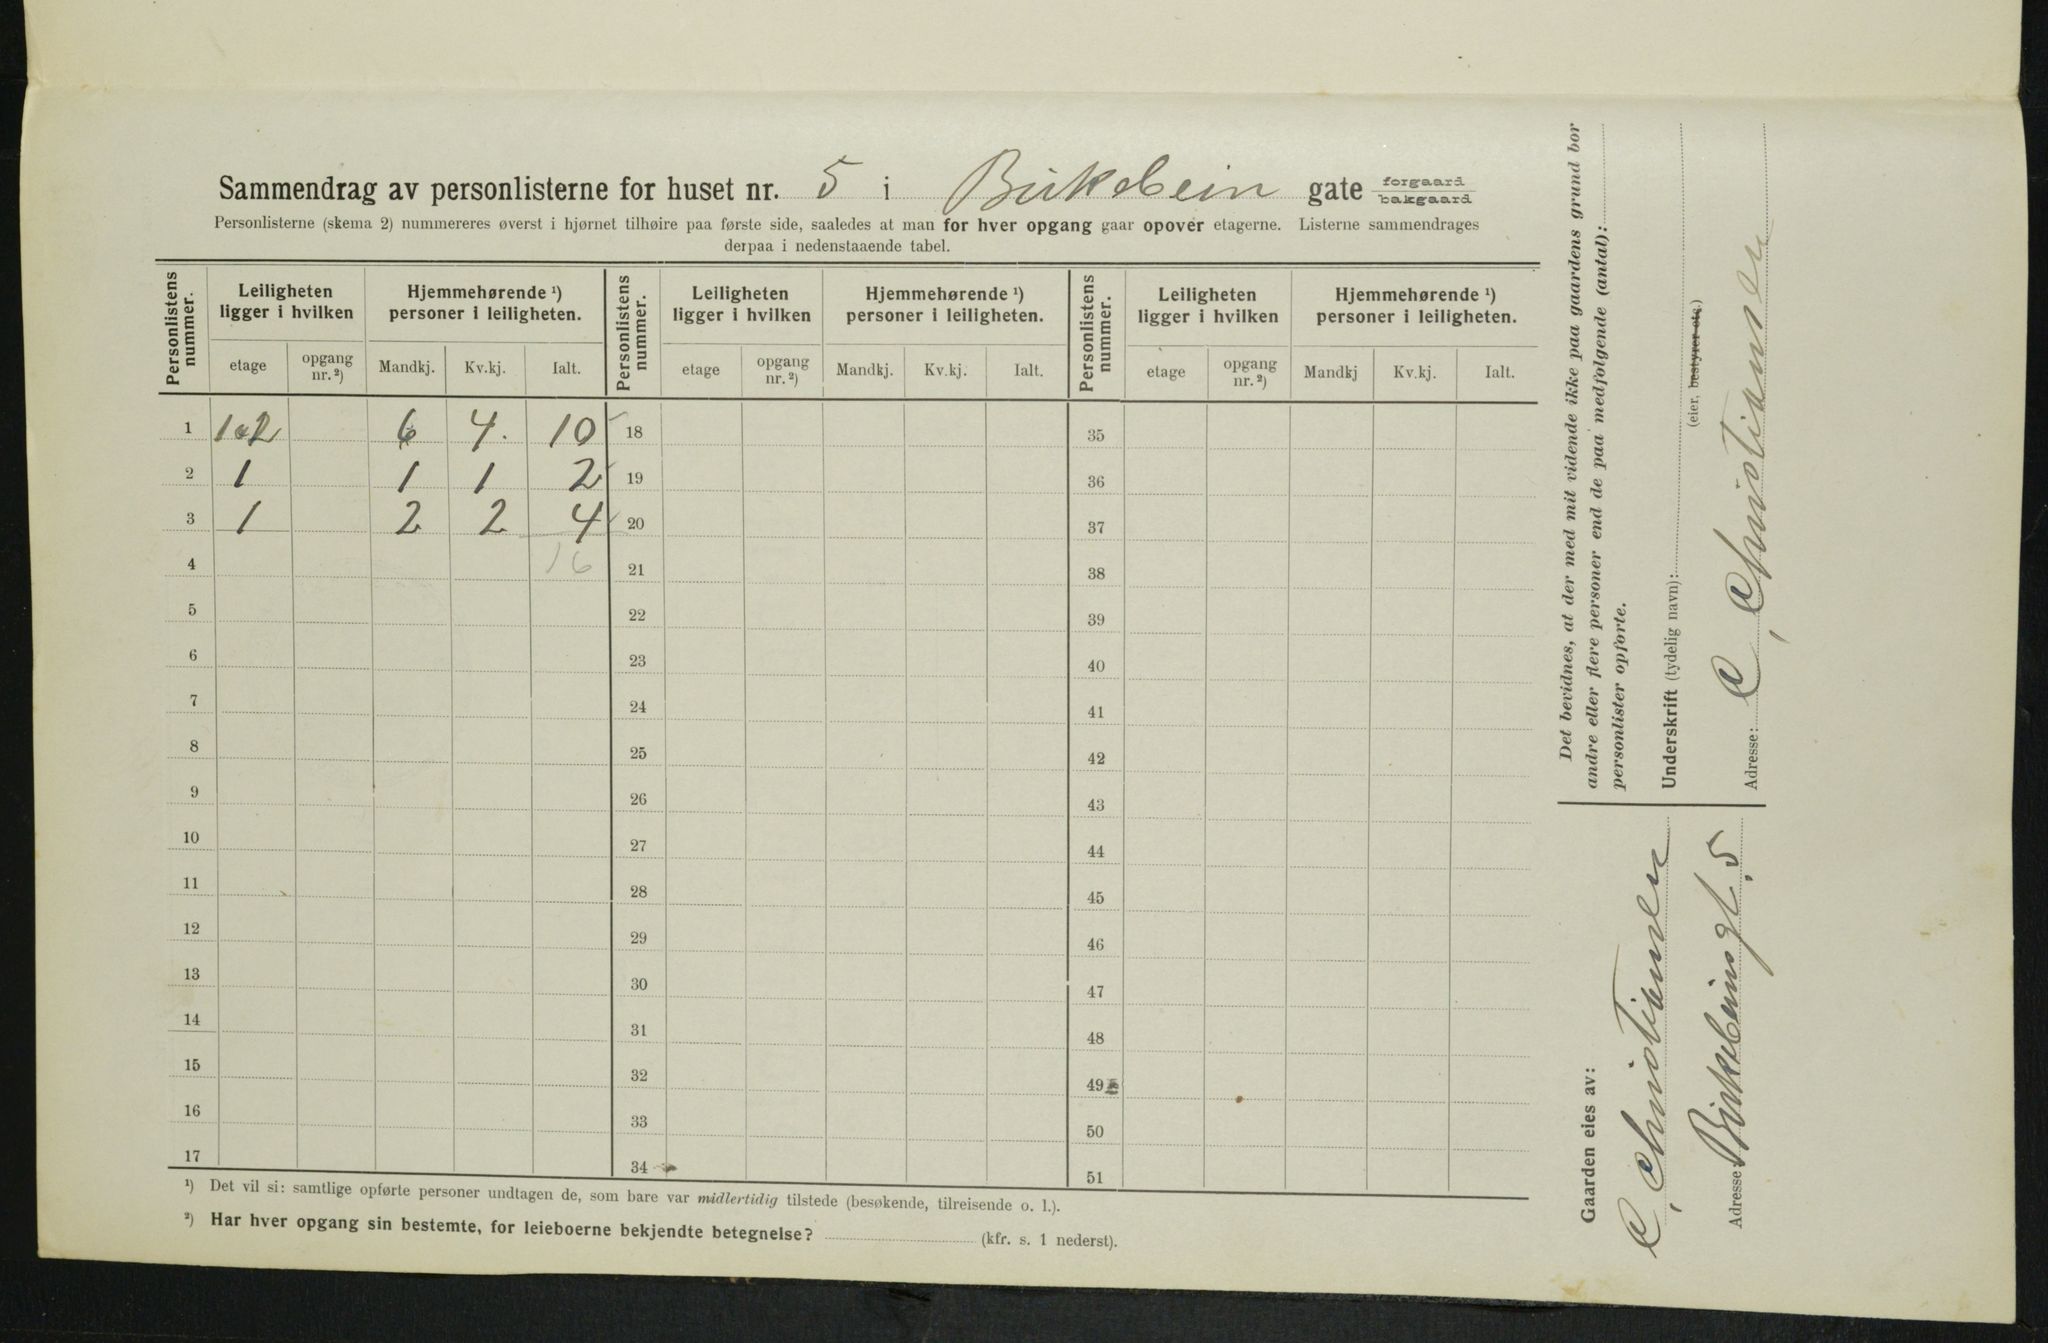 Sammendrag av personlisterne for huset nr. 5 i Birkebein gate forgaard bakgaard
Personlisterne (skema 2) nummereres øverst i hjørnet tilhøire paa første side, saaledes at man for hver opgang gaar opover etagerne. Listerne sammendrages
derpaa i nedenstaaende tabel.
Personlistens nummer. Leiligheten ligger i hvilken Hjemmehørende ¹) personer i leiligheten. Personlistens nummer. Leiligheten ligger i hvilken Hjemmehørende ¹) personer i leiligheten. Personlistens nummer. Leiligheten ligger i hvilken Hjemmehørende ¹) personer i leiligheten.
etage opgang nr. ²) Mandkj. Kv.kj. Ialt. etage opgang nr. ²) Mandkj. Kv.kj. Ialt. etage opgang nr. ²) Mandkj Kv.kj. Ialt.
1 1o2 6 4. 10 18 35
2 1 1 1 2 19 36
3 1 2 2 4 20 37
4 16 21 38
5 22 39
6 23 40
7 24 41
8 25 42
9 26 43
10 27 44
11 28 45
12 29 46
13 30 47
14 31 48
15 32 49
16 33 50
17 34 51
¹) Det vil si: samtlige opførte personer undtagen de, som bare var midlertidig tilstede (besøkende, tilreisende o. l.).
²) Har hver opgang sin bestemte, for leieboerne bekjendte betegnelse? (kfr. s. 1 nederst).
Det bevidnes, at der med mit vidende ikke paa gaardens grund bor
andre eller flere personer end de paa medfølgende (antal):
personlister opførte.
Underskrift (tydelig navn):
(eier, bestyrer etc.)
C, Christiansen
Adresse:
Gaarden eies av:
C, Christiansen
Adresse Birkebeinsgt. 5